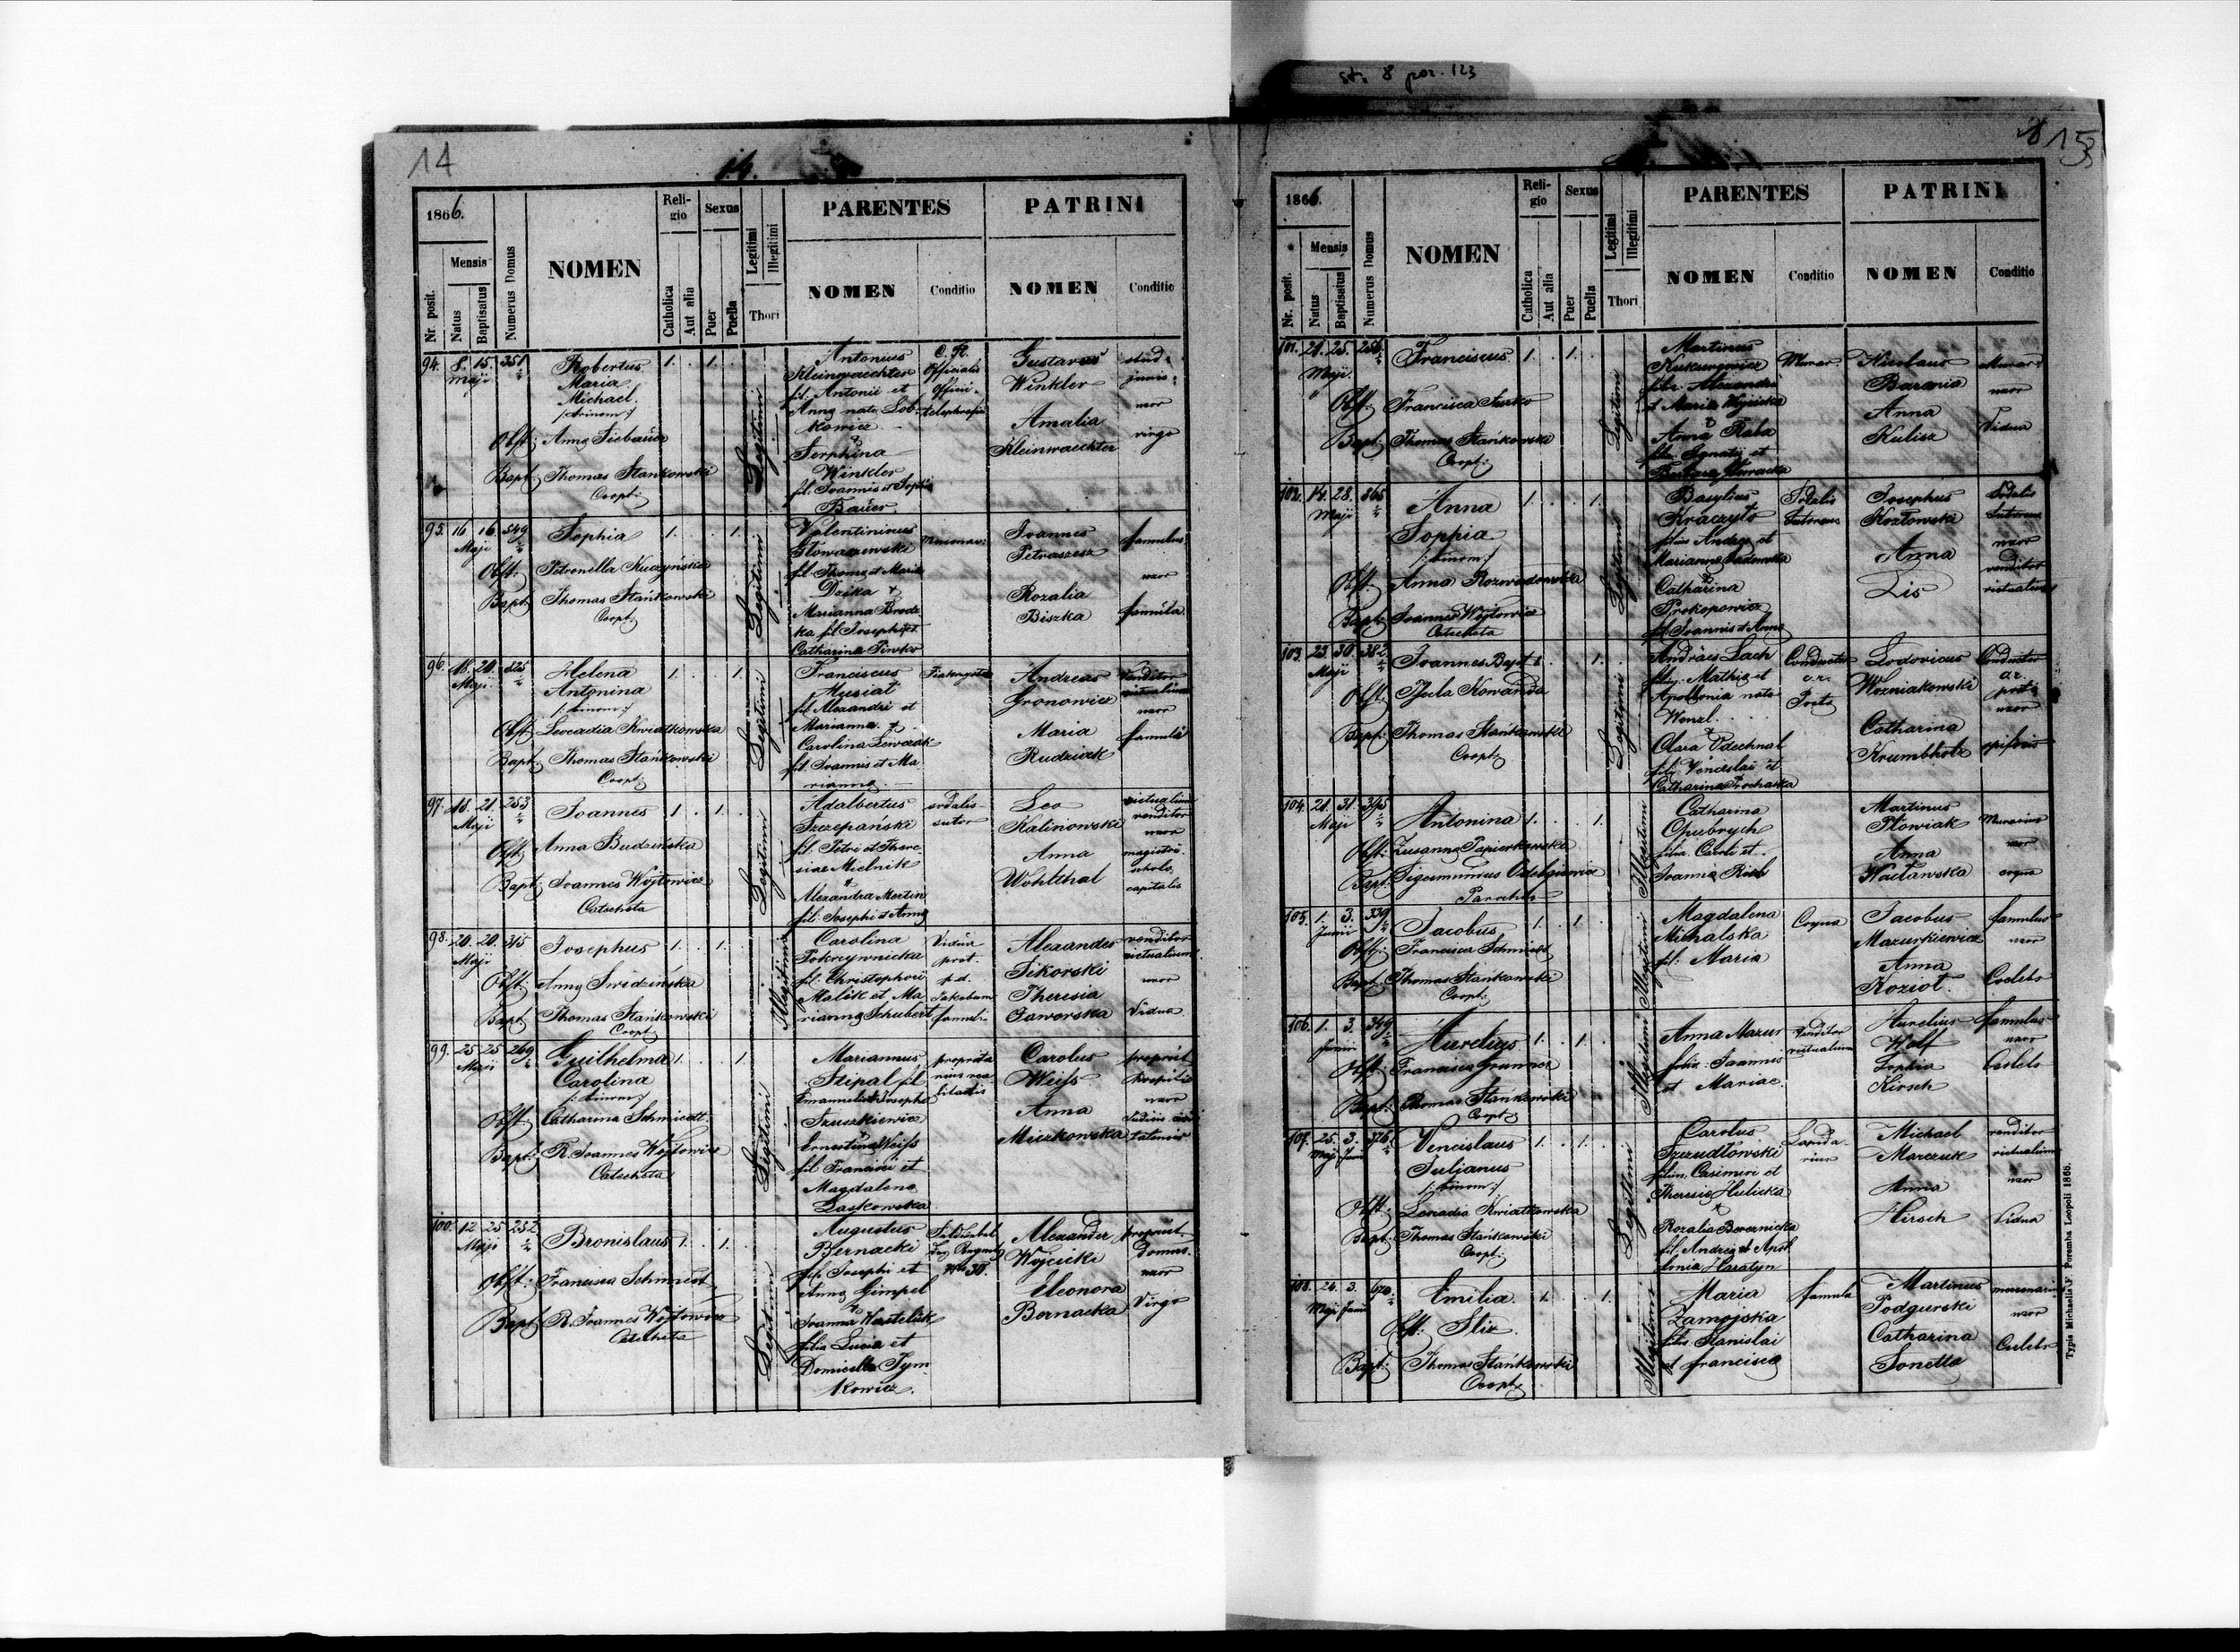 st. 8 poz. 123
14
14.
1866.
Nr. posit.
Mensis
Natus
Baptisatus
Numerus Domus
NOMEN
Religio
Catholica
Aut alia
Sexus
Puer
Puella
Legitimi
Illegitimi
Thori
PARENTES
NOMEN
Conditio
PATRINI
NOMEN
Conditio
94. 8. 15. 351
Maji
Robertus
Maria
Michael
/:binom:/
Obst: Anna
Bapt: Thomas Stańkowski
Coopt:
1. 1.
Legitimi
Antonius
Kleinwaechter
fil: Antonii et
Anna nata Lob-
kowicz
&
Serphina
Winkler
fil. Joannis et Sophia
Bauer
C. R.
Officialis
Offici-
telephrafia
Gustavus
Winkler
Amalia
Kleinwaechter
stud:
juris:
uxor
virgo
95. 16 16 549
Maji
Sophia
Obst: Petronella Kuczyńska
Bapt: Thomas Stańkowski
Coopt:
1. 1.
Legitimi
Valentininus
Głowaczewski
fil. Thoma et Maria
Dzika &
Marianna Brodz
ka fil Josephi et
Catharina Pinsko
Joannes
Petraszesz
Rozalia
Biszka
famulus
uxor
famula
96. 18. 20. 825
Maji
Helena
Antonina
/:binom:/
Obst: Leocadia Kwiatkowska
Bapt: Thomas Stańkowski
Coopt:
1. 1.
Legitimi
Franciscus
Musiat
fil Alexandri et
Marianna &
Carolina Lewczak
fil. Joannis et Ma
rianna
Andreas
Gronowicz
Maria
Rudziak
Venditor
victualium
uxor
famula
97. 18. 21. 253
Maji
Joannes
Obst: Anna Budzińska
Bapt: Joannes Wojtowicz
Catecheta
1. 1.
Legitimi
Adalbertus
Szczepański
fil. Petri et There-
siae Mielnik
&
Alexandra Martin
fil: Josephi et Anna
sodalis
sutor
Leo
Kalinowski
Anna
Wohlthal
victualium
venditor
uxor
magistri
schola
capitalis
98. 20. 20. 315
Maji
Josephus
Obst: Anna Swidzińska
Bapt: Thomas Stańkowski
Coopt:
1. 1.
Illegitimi
Carolina
Pokrzywnicka
fil. Christophori
Malik et Ma
rianna Schubert
Vidua
post.
p.d.
Jakobum
famuli-
Alexander
Sikorski
Theresia
Jaworska
venditor
victualium
uxor
Vidua
99. 25 25 269
Maji
Guilhelma
Carolina
/:binom:/
Obst: Catharina Schmiedt
Bapt: R. Joannes Wojtowicz
Catecheta
1. 1.
Legitimi
Mariannus
Stipal fil
Emannelis et Josepha
Szuszkiewicz
&
Ernestina Weiss
fil Francisci et
Magdalena
Laskowska
proprieta
rius rea
litatis
Carolus
Weiss
Anna
Miczkowska
propriet
hospitii
uxor
100. 12 25 252
Maji
Bronislaus
Obst: Francisca Schmiedt
Bapt: R. Joannes Wojtowicz
Catecheta
1. 1.
Legitimi
Augustus
Bernacki
fil: Josephi et
Anna Gimpel
&
Joanna Wasteluk
filia Lucia et
Domicella Tym-
kowicz.
Nro 30.
Alexander
Wojcicki
Eleonora
Bernacka
propriet.
Domus.
uxor
Virgo
15
1866.
Nr. posit.
Mensis
Natus
Baptisatus
Numerus Domus
NOMEN
Religio
Catholica
Aut alia
Sexus
Puer
Puella
Legitimi
Illegitimi
Thori
PARENTES
NOMEN
Conditio
PATRINI
NOMEN
Conditio
101. 21. 25. 256
Maji
Franciscus
Obst: Francisca Turko
Bapt: Thomas Stańkowski
Coopt:
1. 1.
Legitimi
Martinus
Kukurowicz
filr. Alexandri
et Maria Wojcicka
&
Anna Raba
filr. Ignatii et
Murar:
Nicolaus
Barania
Anna
Kulisz
Murar:
uxor
Vidua
102. 14. 28. 865
Maji
Anna
Sophia
/:binom:/
Obst: Anna Rozwadowska
Bapt: Joannes Wojtowicz
Catecheta
1. 1.
Legitimi
Basylius
Kraczyło
filius Andrea et
Marianna Sadowska
&
Catharina
Prokopowicz
fil Joannis et Anna
Sodalis
Sutorius
Josephus
Kozłowski
Anna
Lis
Sodalis
Sutorius
uxor
venditor
victualium
103. 23. 30. 382
Maji
Joannes Bapt
Obst: Kowanda
Bapt: Thomas Stańkowski
Coopt:
1.
Legitimi
Andräes Lach
filr. Mathia et
Apollonia nata
Wenzl.
&
Clara
filr. Venceslai et
Catharina Prochaska
Conductor
a.r.
Porto
Lodovicus
Wozniakowski
Catharina
Krumbholz
Conductor
a.r.
porto
uxor
104. 21. 31. 345
Maji
Antonina
Obst: Zusanna Papierkowska
Bapt: Sigesmundus Odelgiewicz
Parochus
1. 1.
Illegitimi
Catharina
Opubrych
filia. Caroli et
Joanna
Martinus
Płowiak
Anna
Wacławska
Murarius
uxor
coqua
105. 1. 3. 339
Junii
Jacobus
Obst: Francisca Schmiedt
Bapt: Thomas Stańkowski
Coopt:
1. 1
Illegitimi
Magdalena
Michalska
fil: Maria
Coqua
Jacobus
Mazurkiewicz
Anna
Kozioł.
famulus
uxor
Coelebs
106. 1. 3. 349
Junii
Aurelius
Obst: Francisca Grunner
Bapt: Thomas Stańkowski
Coopt:
1. 1.
Illegitimi
Anna Mazur
filia: Joannis
et Mariae.
Venditor
victualium
Aurelius
Wolf
Sophia
Kirsch
famulus
uxor
Coelebs
107. 25. 3. 376
Maji Junii
Vencislaus
Juljanus
/:binom:/
Obst: Leocadia Kwiatkowska
Bapt: Thomas Stańkowski
Coopt:
1. 1.
Legitimi
Carolus
Szczudłowski
filius. Casimiri et
Theresia Hulicka
&
Rozalia Bwernicka
fil. Andrea et Apol
lonia Haratyn
Lapida-
rius
Michael
Marczuk
Anna
Hirsch
venditor
victualium
uxor
Vidua
108. 24. 3. 670
Maji Junii
Emilia.
Obst: Sliz.
Bapt: Thomas Stańkowski
Coopt:
1. 1.
Illegitimi
Maria
Zamojska
filia Stanislai
et francisca
famula
Martinus
Podgurski
Catharina
Sonetta
mercenarius
uxor
Celebs
Typis Michaelis F. Poremba Leopoli 1865.